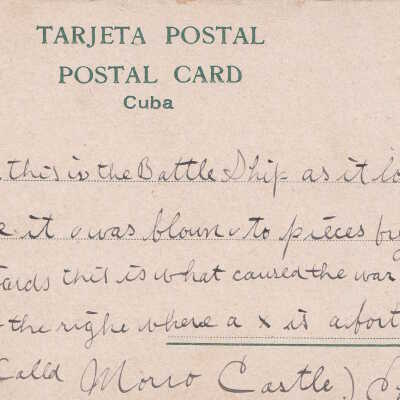 TARJETA POSTAL
POSTAL CARD
Cuba
this is the Battle Ship as it lo
e it was blown to pieces by
ards this is what caused the war
the righe where a x is a fort
Calld Morro Castle)